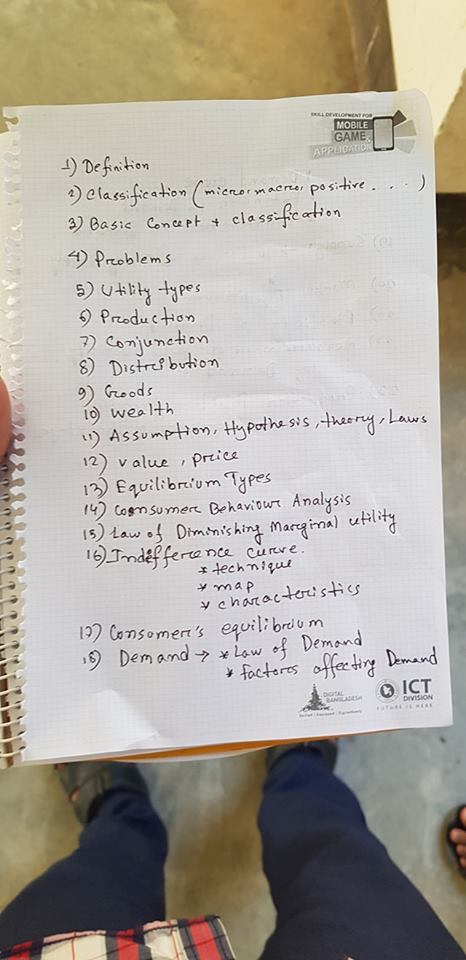 SKILL DEVELOPMENT FOR
MOBILE
GAME &
APPLICATION
1) Definition
2) Classification (micro, macro, positive . . . )
3) Basic Concept + classification
4) Problems
5) Utility types
6) Production
7) Conjunction
8) Distribution
9) Goods
10) Wealth
11) Assumption, Hypothesis, theory, Laws
12) Value, price
13) Equilibrium Types
14) Consumer Behaviour Analysis
15) Law of Diminishing Marginal utility
16) Indifference curve.
* technique
* map
* characteristics
17) Consumer's equilibrium
18) Demand → * Law of Demand
* factors affecting Demand
DIGITAL
BANGLADESH
ICT
DIVISION
FUTURE IS HERE